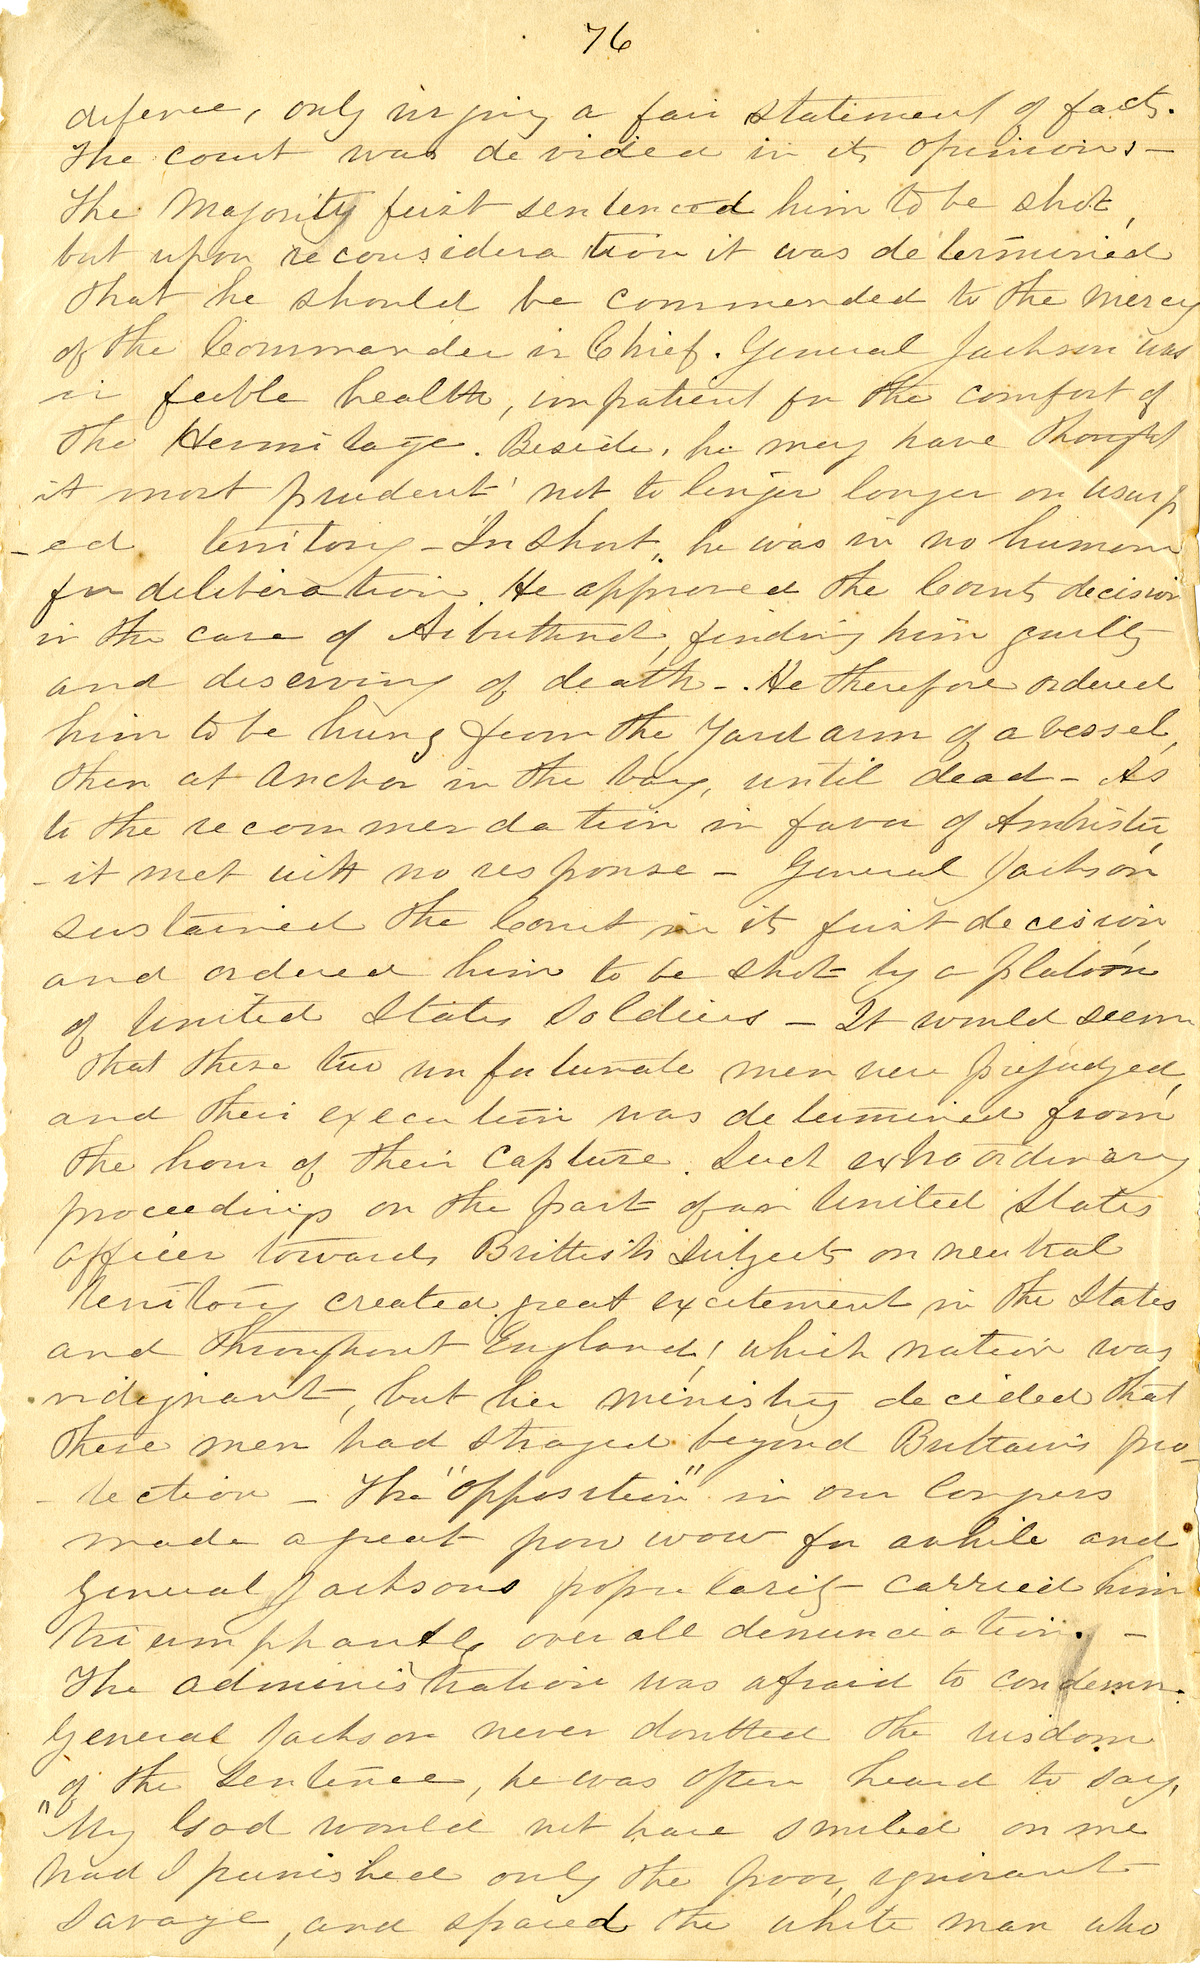 76
defence, only urging a fair statement of facts.
The court was devided in its opinions, -
The Majority first sentenced him to be shot,
but upon reconsideration it was determined
that he should be commended to the mercy
of the Commander in Chief. General Jackson was
in feeble health, impatient for the comfort of
the Hermitage. Beside, he may have thought
it most prudent not to linger longer on usurp
-ed territory - In short, he was in no humor
for deliberation. He approved the Courts decision
in the case of Arbuthnot, finding him guilty
and deserving of death -. He therefore ordered
him to be hung from the Yard arm of a vessel,
then at anchor in the bay, until dead - As
to the recommendation in favor of Ambister,
- it met with no response - General Jackson
sustained the Court in its first decision
and ordered him to be shot by a platoon
of United States Soldiers - It would seem
that these two unfortunate men were prejudged,
and their execution was determined from
the hour of their capture. Such extraordinary
proceedings on the part of an United States
officer towards Brittish Subjects on neutral
territory created great excitement in the States
and throughout England, which nation was
indignant, but her ministry decided that
these men had strayed beyond Brittain's pro-
- tection - The "opposition" in our Congress
made a great pow wow for awhile and
General Jacksons popularity carried him
triumphantly over all denunciation. -
The administration was afraid to condemn.
General Jackson never doubted the wisdom
of the Sentence, he was often heard to say,
"My God would not have smiled on me
had I punished only the poor, ignorant
Savage, and spared the white man who